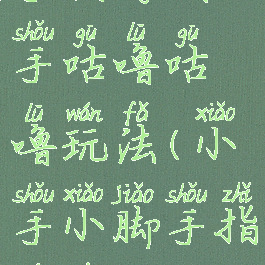 shǒu gū lū gū
手咕噜咕
lū wán fǎ xiǎo
噜玩法(小
shǒu xiǎo jiǎo shǒu zhǐ
手小脚手指